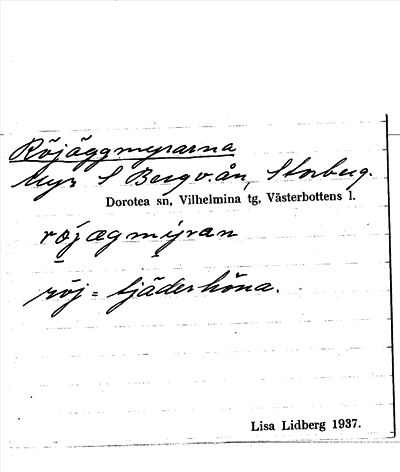 Röjäggmyrarna
Myr S Bergv.ån, Storberg.
Dorotea sn, Vilhelmina tg, Västerbottens l.
röjægmýran
röj = tjäderhöna.
Lisa Lidberg 1937.